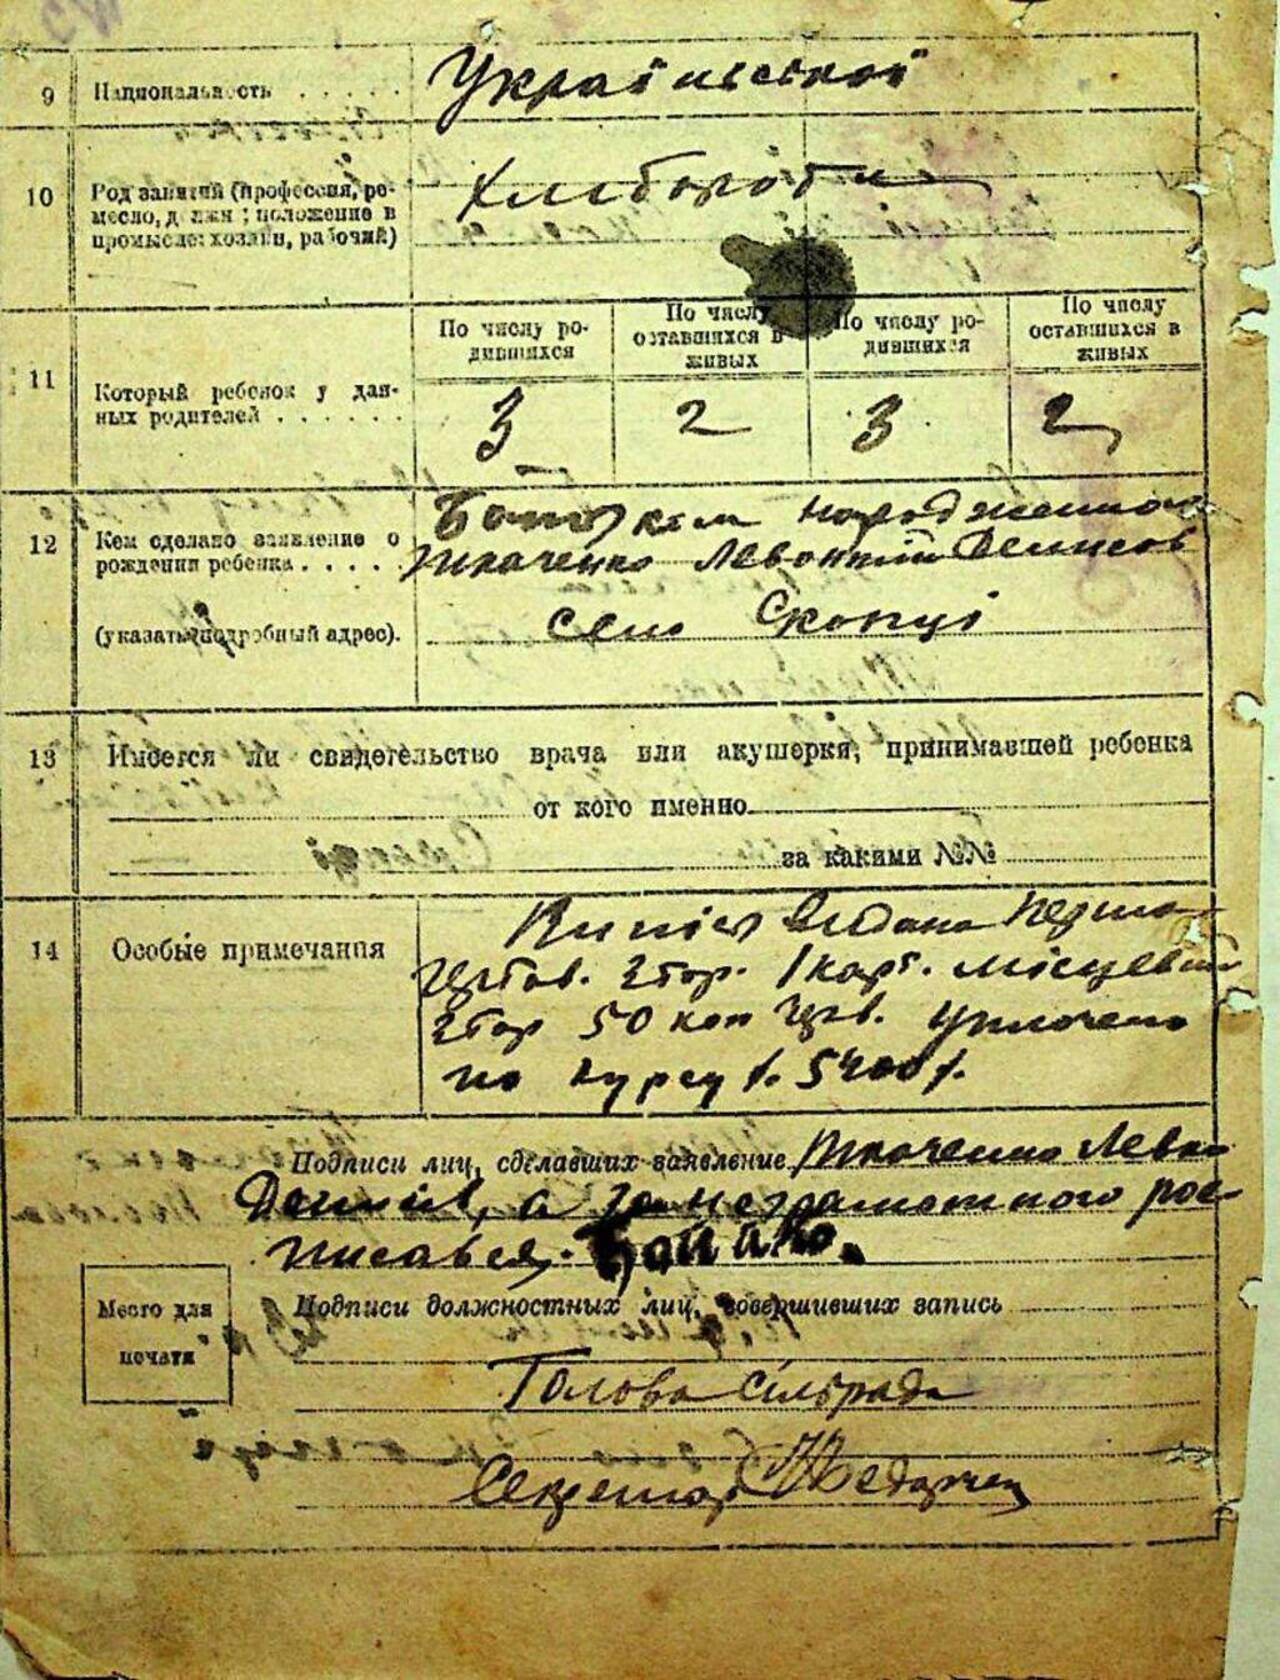 9 Национальность . . . . . Української
10 Род занятий (профессия, ре-
месло, должн; положение в
промысле: хозяин, рабочий)
Хлібороби
11 Который ребенок у дан-
ных родителей . . . . . .
По числу ро-
дившихся
По числу
оставшихся в
живых
По числу ро-
дившихся
По числу
оставшихся в
живых
3 2 3 2
12 Кем сделано заявление о
рождении ребенка . . . . .
(указать подробный адрес).
Батьком народженного
Ткаченко Левонтий Денисов
село Скопці
13 Имеется ли свидетельство врача или акушерки, принимавшей ребенка
от кого именно
за какими №№
14 Особые примечания
видана
2 1 карб. місцевий
50 коп уплочено
по курсу 5400
Подписи лиц, сделавших заявление Ткаченко Левон
а за неграмотного рос-
писався.
Место для
печати
Подписи должностных лиц, совершивших запись
Голова сільради
Секретар